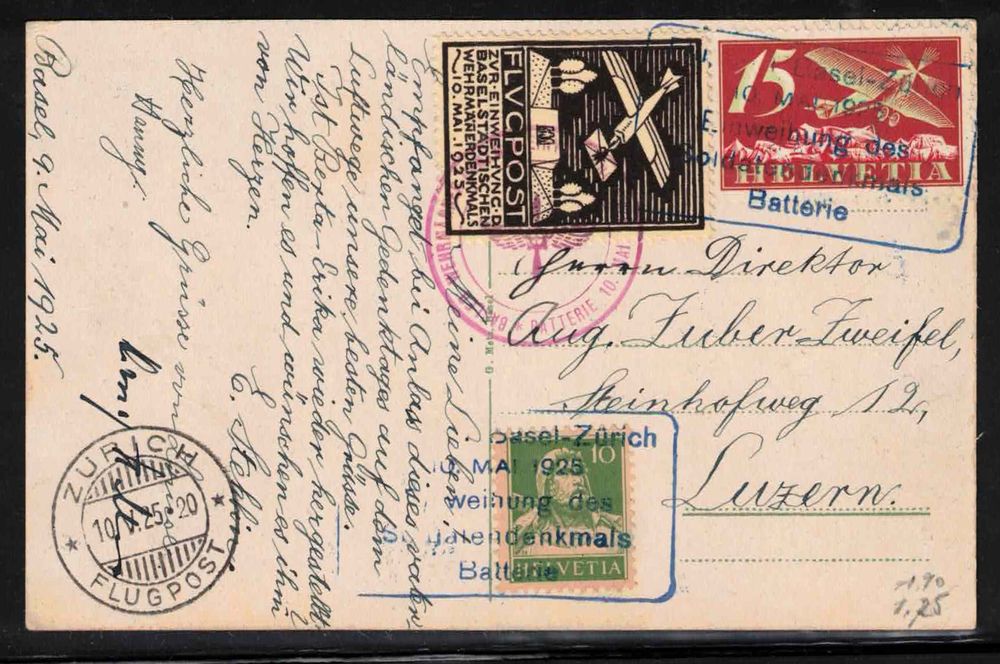 Basel, 9. Mai 1925.
Meine Lieben!
Empfanget bei Anlass dieses vater-
ländischen Gedenktages auf dem
Luftwege unsere besten Grüsse.
Ist Berta-Erika wieder hergestellt?
Wir hoffen es und wünschen es ihm
von Herzen.
Herzliche Grüsse von
Hanny.
FLVGPOST
ZVR·EINWEIHVNG·D.
BASEL·STÄDTISCHEN
WEHRMÄNNERDENKMALS
10·MAI·1925
15
HELVETIA
Basel-Zürich
10. MAI 1925
Einweihung des
Soldatendenkmals
Batterie
BATTERIE 10. MAI
Herrn Direktor
Aug. Zuber-Zweifel,
Steinhofweg 12,
Luzern.
10
HELVETIA
Basel-Zürich
10. MAI 1925
weihung des
Soldatendenkmals
Batterie
ZÜRICH
FLUGPOST
1.90
1.25